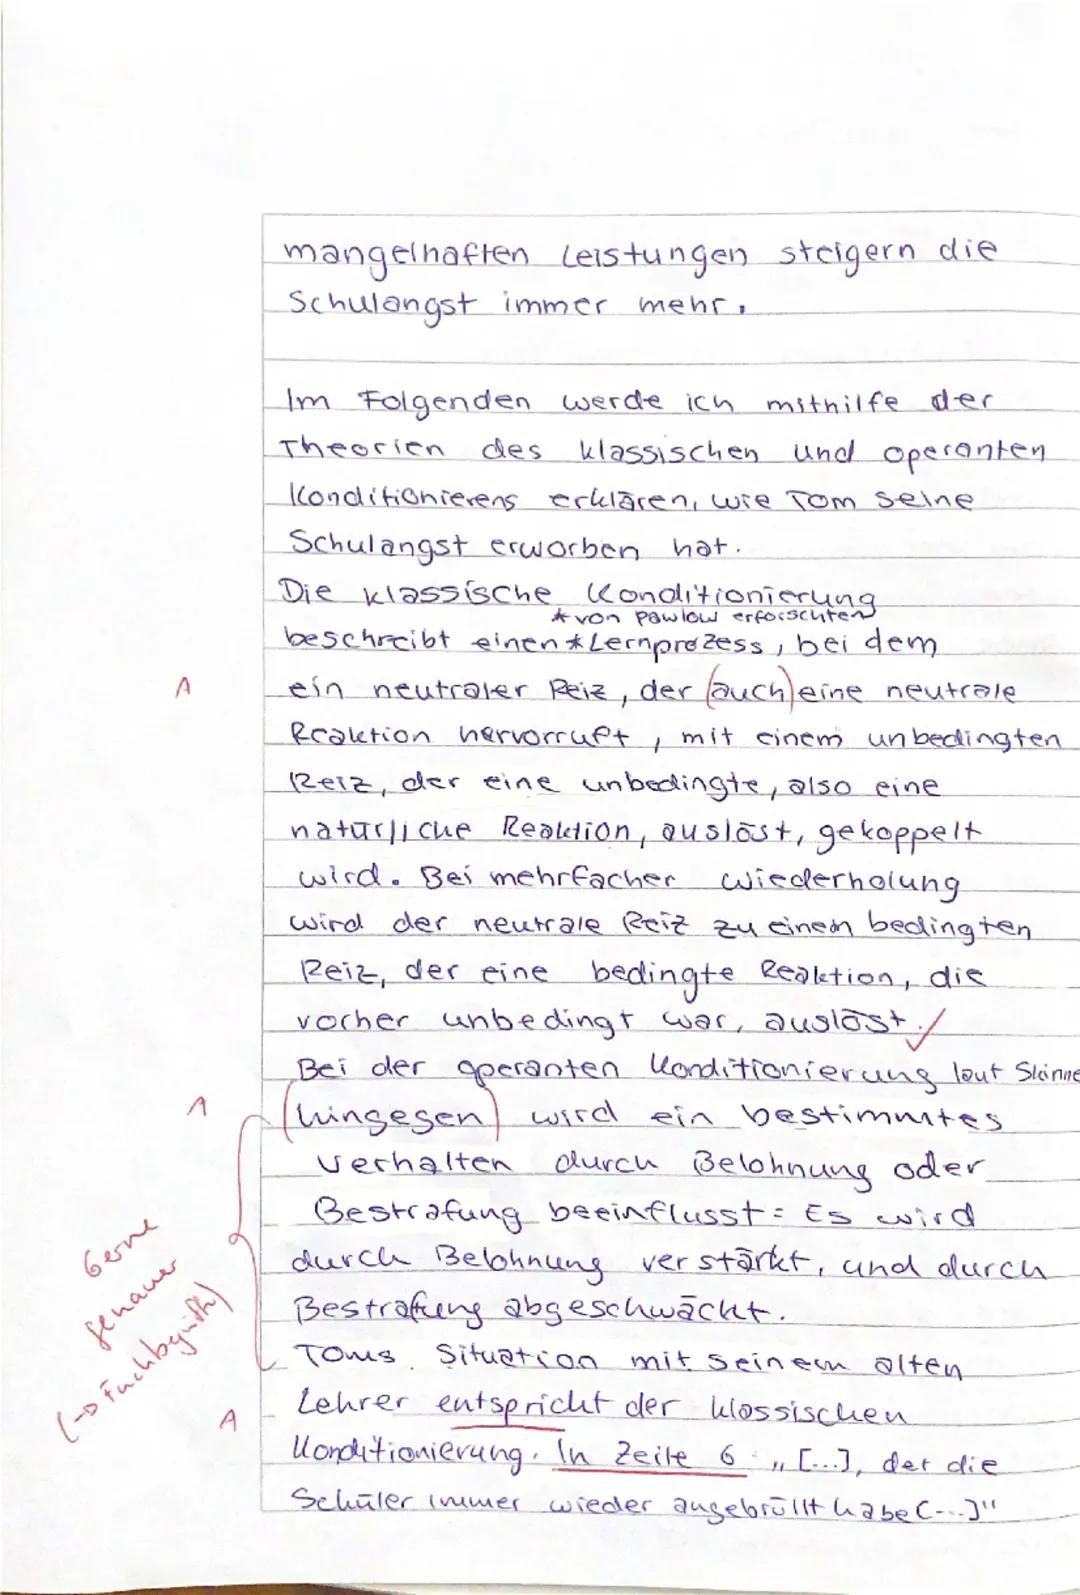 mangelhaften Leistungen steigern die
Schulangst immer mehr.
Im Folgenden werde ich mithilfe der
Theorien des klassischen und operanten
Konditionierens erklären, wie Tom seine
Schulangst erworben hat.
Die klassische Konditionierung
* von Pawlow erforschten
beschreibt einen * Lernprozess, bei dem
A ein neutraler Reiz, der (auch) eine neutrale
Reaktion hervorruft, mit einem unbedingten
Reiz, der eine unbedingte, also eine
natürliche Reaktion, auslöst, gekoppelt
wird. Bei mehrfacher Wiederholung
wird der neutrale Reiz zu einem bedingten
Reiz, der eine bedingte Reaktion, die
vorher unbedingt war, auslöst. ✓
Bei der operanten Konditionierung laut Skinne
A (hingegen) wird ein bestimmtes
Verhalten durch Belohnung oder
Bestrafung beeinflusst: Es wird
durch Belohnung verstärkt, und durch
Bestrafung abgeschwächt.
Gerne
genauer
(→ Fachbegriffe)
Toms Situation mit seinem alten
A Lehrer entspricht der klassischen
Konditionierung. In Zeile 6 „[...], der die
Schüler immer wieder angebrüllt habe [...]"